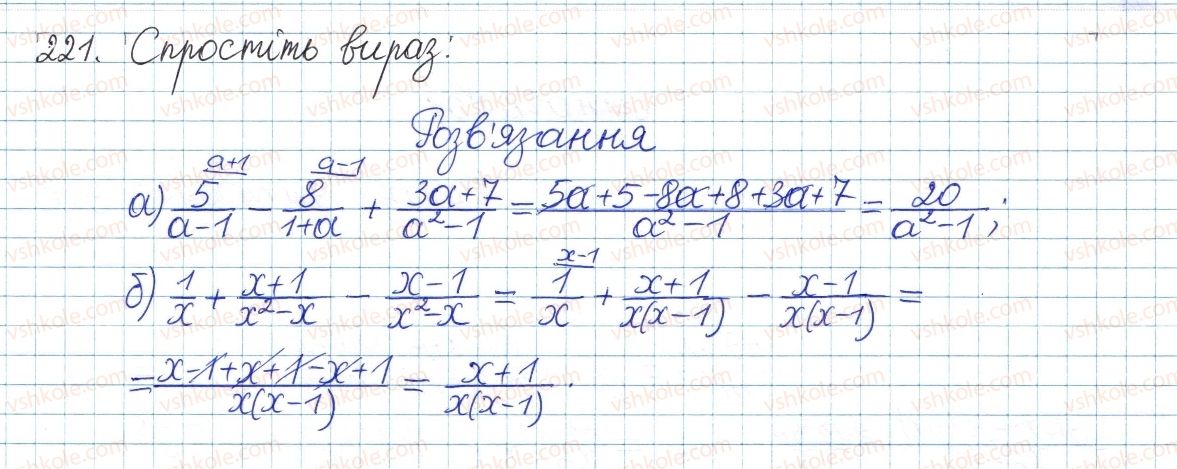 221. Спростіть вираз:
Розв'язання
а) 5/(a-1) (a+1) - 8/(1+a) (a-1) + (3a+7)/(a²-1) = (5a+5-8a+8+3a+7)/(a²-1) = 20/(a²-1);
б) 1/x + (x+1)/(x²-x) - (x-1)/(x²-x) = 1/x (x-1) + (x+1)/(x(x-1)) - (x-1)/(x(x-1)) =
= (x-1+x+1-x+1)/(x(x-1)) = (x+1)/(x(x-1)).